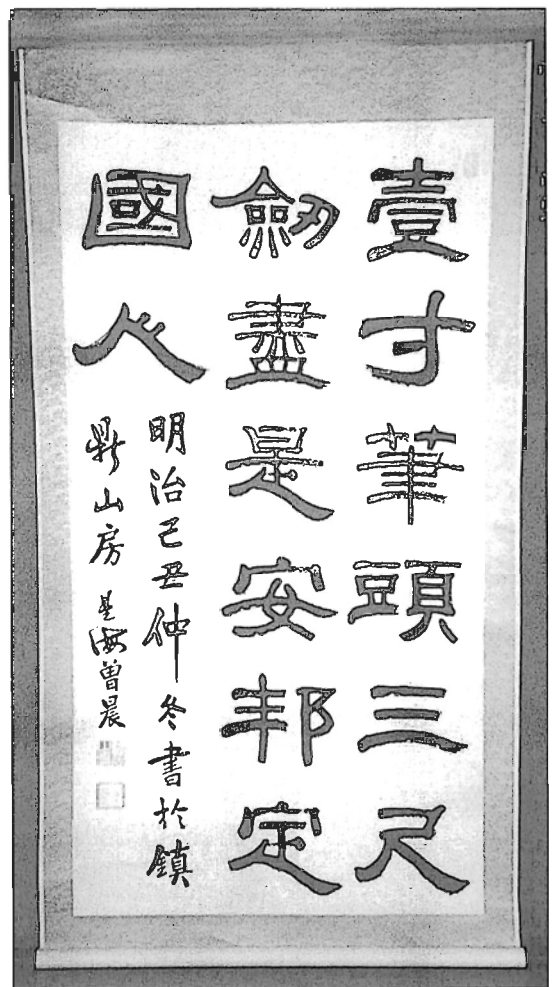 壹寸筆頭三尺
劒盡是安邦定
國人
明治己丑仲冬書於鎮
鼎山房 星海曾晨